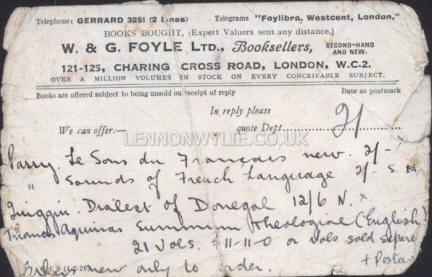 Telephone: GERRARD 3251 (2 Lines) Telegrams "Foylibra, Westcent, London."
BOOKS BOUGHT, (Expert Valuers sent any distance.)
W. & G. FOYLE LTD., Booksellers, SECOND-HAND AND NEW.
121-125, CHARING CROSS ROAD, LONDON, W.C.2.
OVER A MILLION VOLUMES IN STOCK ON EVERY CONCEIVABLE SUBJECT.
Books are offered subject to being unsold on receipt of reply Date as postmark
In reply please
We can offer:— quote Dept. 21
LENNONWYLIE.CO.UK
Passy. Le Sons du Francais new. 2/-
" Sounds of French Language 2/- S.H.
Quiggin. Dialect of Donegal 12/6 N.
Thomas Aquinas Summum theologiae (English)
21 Vols. £11-11-0 or vols sold separ
new only to order. + Postage